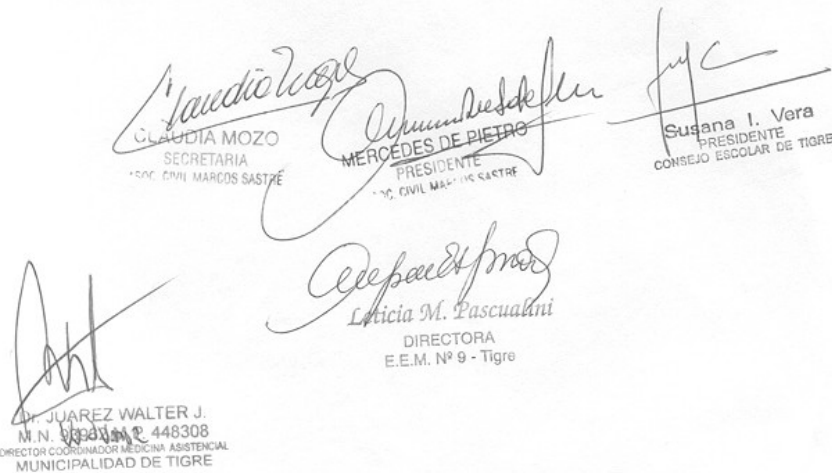 CLAUDIA MOZO
SECRETARIA
ASOC. CIVIL MARCOS SASTRE
MERCEDES DE PIETRO
PRESIDENTE
ASOC. CIVIL MARCOS SASTRE
Susana I. Vera
PRESIDENTE
CONSEJO ESCOLAR DE TIGRE
Leticia M. Pascualini
DIRECTORA
E.E.M. Nº 9 - Tigre
Dr. JUAREZ WALTER J.
M.N. 448308
DIRECTOR COORDINADOR MEDICINA ASISTENCIAL
MUNICIPALIDAD DE TIGRE